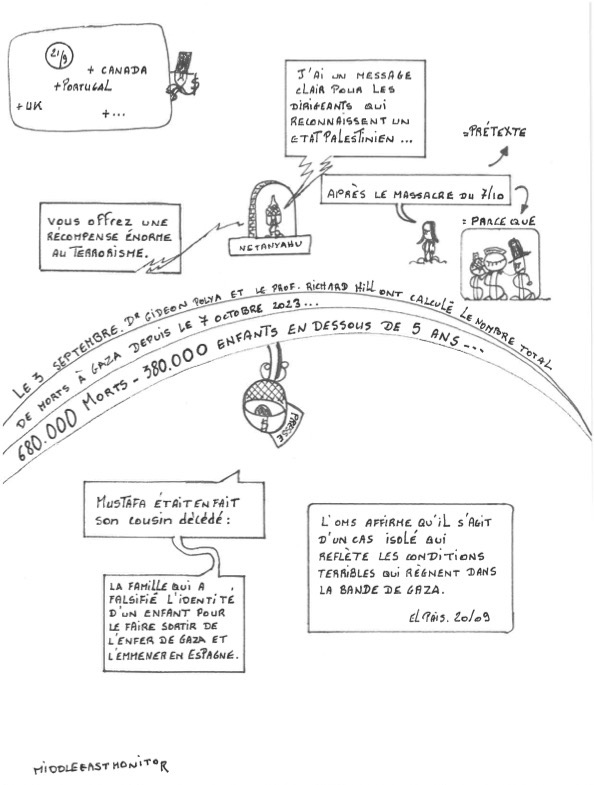 21/9
+ CANADA
+PORTUGAL
+UK
+...
J'AI UN MESSAGE
CLAIR POUR LES
DIRIGEANTS QUI
RECONNAISSENT UN
ETAT PALESTINIEN ...
=PRÉTEXTE
APRÈS LE MASSACRE DU 7/10
= PARCE QUE
VOUS OFFREZ UNE
RÉCOMPENSE ÉNORME
AU TERRORISME.
NETANYAHU
LE 3 SEPTEMBRE. DR GIDEON POLYA ET LE PROF. RICHARD HILL ONT CALCULÉ LE NOMBRE TOTAL
DE MORTS À GAZA DEPUIS LE 7 OCTOBRE 2023...
680.000 MORTS - 380.000 ENFANTS EN DESSOUS DE 5 ANS...
PRESSE
MUSTAFA ÉTAIT EN FAIT
SON COUSIN DÉCÉDÉ:
LA FAMILLE QUI A
FALSIFIÉ L'IDENTITÉ
D'UN ENFANT POUR
LE FAIRE SORTIR DE
L'ENFER DE GAZA ET
L'EMMENER EN ESPAGNE.
L'OMS AFFIRME QU'IL S'AGIT
D'UN CAS ISOLÉ QUI
REFLÈTE LES CONDITIONS
TERRIBLES QUI RÈGNENT DANS
LA BANDE DE GAZA.
EL PAIS. 20/09
MIDDLEEASTMONITOR